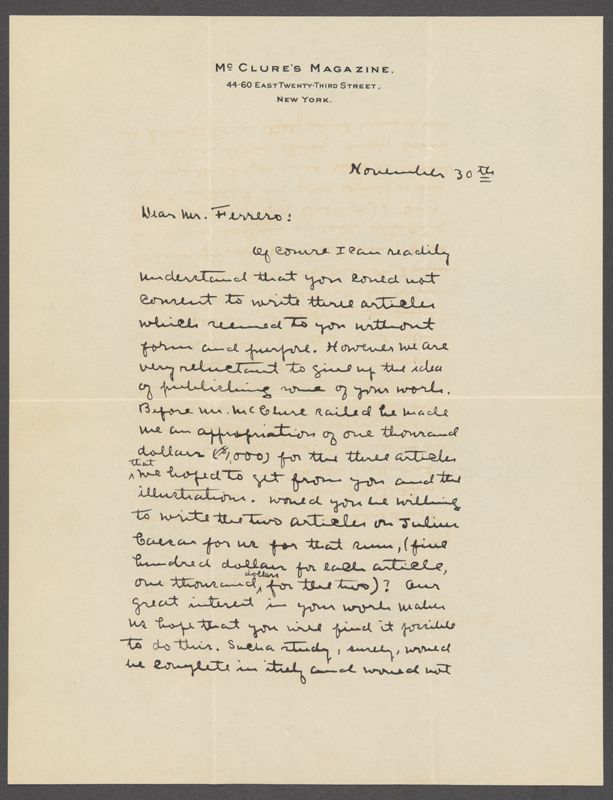 McCLURE'S MAGAZINE.
44-60 EAST TWENTY-THIRD STREET,
NEW YORK.
November 30th
Dear Mr. Ferrero:
Of course I can readily
understand that you could not
consent to write three articles
which seemed to you without
form and purpose. However we are
very reluctant to give up the idea
of publishing some of your work.
Before Mr. McClure sailed he made
me an appropriation of one thousand
dollars ($1,000) for the three articles
that
we hoped to get from you and the
illustrations. Would you be willing
to write the two articles on Julius
Caesar for us for that sum, (five
hundred dollars for each article,
dollars
one thousand, for the two)? Our
great interest in your work makes
us hope that you will find it possible
to do this. Such a study, surely, would
be complete in itself and would not